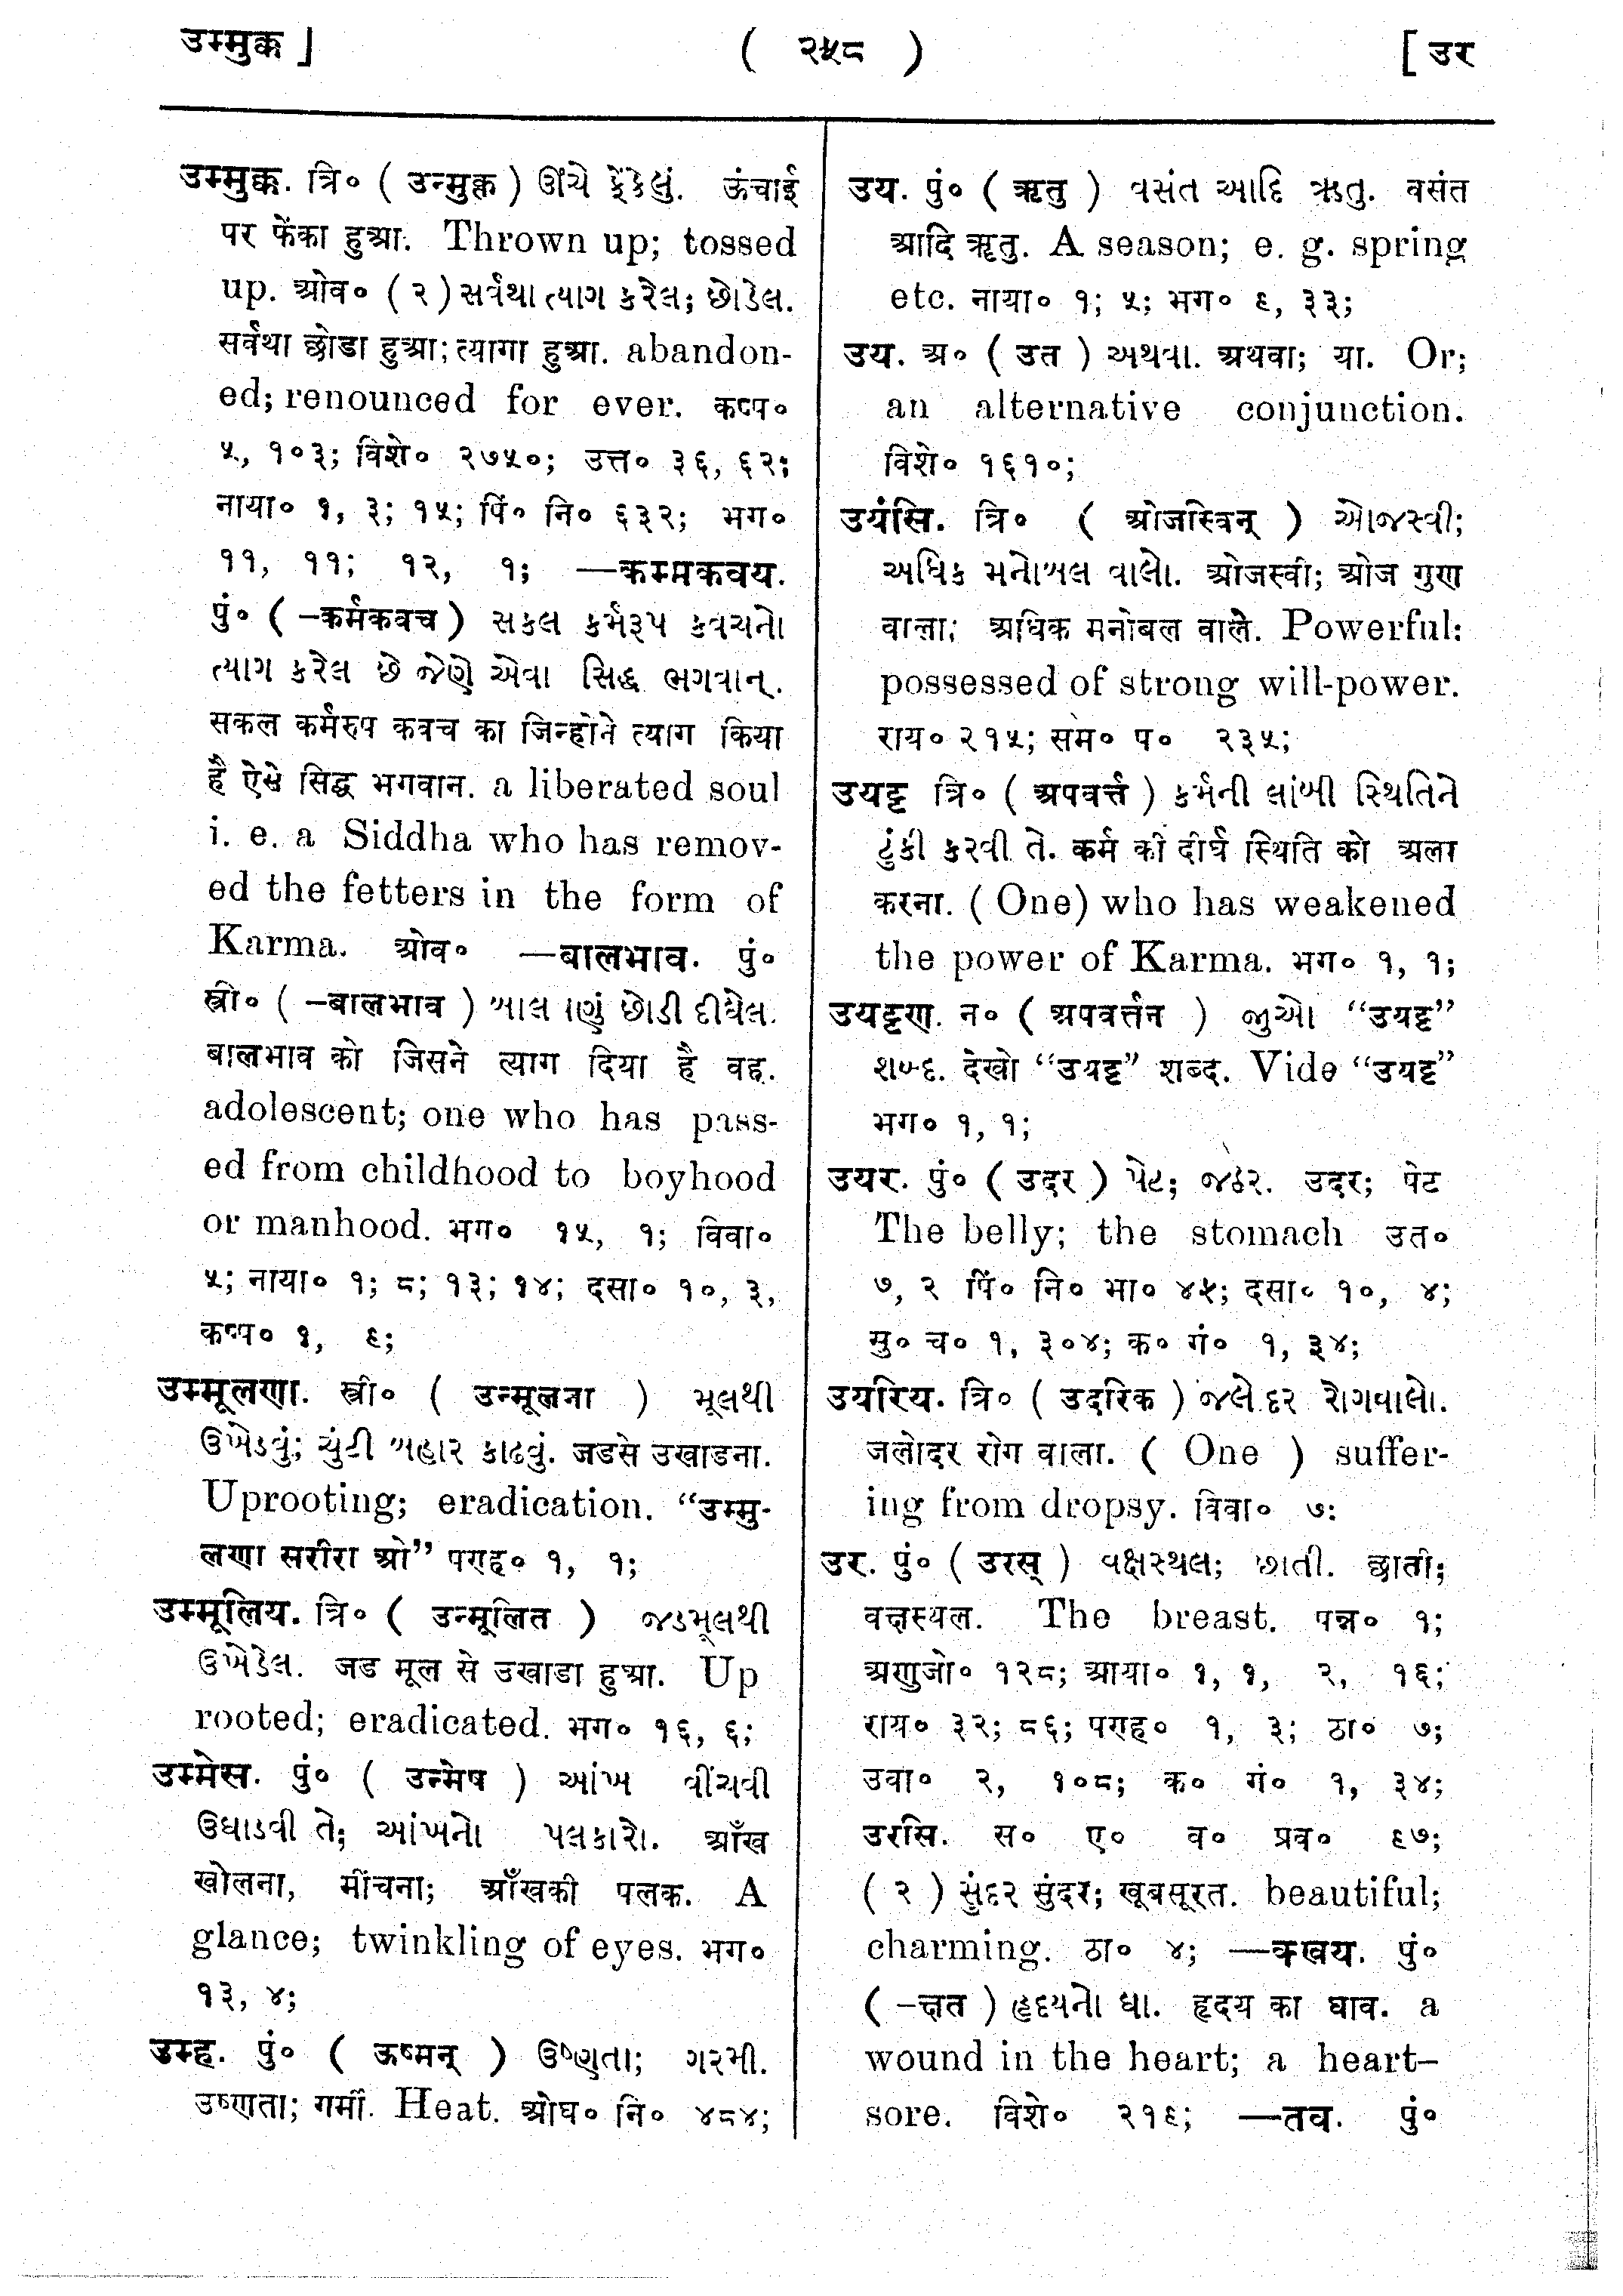 उम्मुक्क ]
( २५८ )
[ उर
उम्मुक्क. त्रि० ( उन्मुक्त ) ઊંચે ફેંકેલું. ऊंचाई
पर फेंका हुआ. Thrown up; tossed
up. ओव० ( २ ) સર્વથા ત્યાગ કરેલ; છોડેલ.
सर्वथा छोडा हुआ; त्यागा हुआ. abandon-
ed; renounced for ever. कप्प०
५, १०३; विशे० २७५०; उत्त० ३६, ६२;
नाया० १, ३; १५; पिं० नि० ६३२; भग०
११, ११; १२, १; —कम्मकवय.
पुं० ( -कर्मकवच ) સકલ કર્મરૂપ કવચનો
ત્યાગ કરેલ છે જેણે એવા સિદ્ધ ભગવાન્.
सकल कर्मरुप कवच का जिन्होंने त्याग किया
है ऐसे सिद्ध भगवान. a liberated soul
i. e. a Siddha who has remov-
ed the fetters in the form of
Karma. ओव० —बालभाव. पुं०
स्त्री० ( -बालभाव ) બાલ ણું છોડી દીધેલ.
बालभाव को जिसने त्याग दिया है वह.
adolescent; one who has pass-
ed from childhood to boyhood
or manhood. भग० १५, १; विवा०
५; नाया० १; ८; १३; १४; दसा० १०, ३,
कप्प० १, ९;
उम्मूलणा. स्त्री० ( उन्मूलना ) મૂલથી
ઉખેડવું; ચુંટી બહાર કાઢવું. जडसे उखाडना.
Uprooting; eradication. “उम्मु-
लणा सरीरा ओ” पण्ह० १, १;
उम्मूलिय. त्रि० ( उन्मूलित ) જડમૂલથી
ઉખેડેલ. जड मूल से उखाडा हुआ. Up
rooted; eradicated. भग० १६, ६;
उम्मेस. पुं० ( उन्मेष ) આંખ વીંચવી
ઉઘાડવી તે; આંખનો પલકારો. आँख
खोलना, मींचना; आँखकी पलक. A
glance; twinkling of eyes. भग०
१३, ४;
उम्ह. पुं० ( ऊष्मन् ) ઉષ્ણતા; ગરમી.
उष्णता; गर्मी. Heat. ओघ० नि० ४८४;
उय. पुं० ( ऋतु ) વસંત આદિ ઋતુ. वसंत
आदि ऋतु. A season; e. g. spring
etc. नाया० १; ५; भग० ९, ३३;
उय. अ० ( उत ) અથવા. अथवा; या. Or;
an alternative conjunction.
विशे० १६१०;
उयंसि. त्रि० ( ओजस्विन् ) ઓજસ્વી;
અધિક મનોબલ વાલો. ओजस्वी; ओज गुण
वाला; अधिक मनोबल वाले. Powerful:
possessed of strong will-power.
राय० २१५; सम० प० २३५;
उयट्ट त्रि० ( अपवर्त्त ) કર્મની લાંબી સ્થિતિને
ટુંકી કરવી તે. कर्म की दीर्घ स्थिति को अला
करना. ( One) who has weakened
the power of Karma. भग० १, १;
उयट्टण. न० ( अपवर्त्तन ) જુઓ “उयट्ट”
શબ્દ. देखो “उयट्ट” शब्द. Vide “उयट्ट”
भग० १, १;
उयर. पुं० ( उदर ) પેટ; જઠર. उदर; पेट
The belly; the stomach उत०
७, २ पिं० नि० भा० ४५; दसा० १०, ४;
सु० च० १, ३०४; क० गं० १, ३४;
उयरिय. त्रि० ( उदरिक ) જલોદર રોગવાલો.
जलोदर रोग वाला. ( One ) suffer-
ing from dropsy. विवा० ७:
उर. पुं० ( उरस् ) વક્ષસ્થલ; છાતી. छाती;
वक्षस्थल. The breast. पन्न० १;
अणुजो० १२८; आया० १, १, २, १६;
राय० ३२; ८६; पण्ह० १, ३; ठा० ७;
उवा० २, १०८; क० गं० १, ३४;
उरसि. स० ए० व० प्रव० ९७;
( २ ) સુંદર सुंदर; खूबसूरत. beautiful;
charming. ठा० ४; —क्खय. पुं०
( -क्षत ) હૃદયનો ઘા. हृदय का घाव. a
wound in the heart; a heart-
sore. विशे० २१९; —तव. पुं०